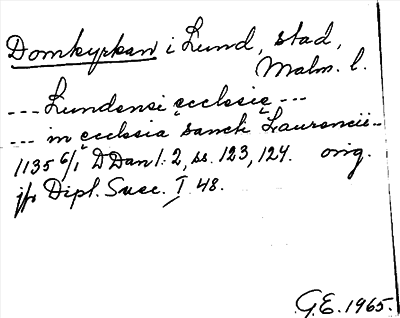 Domkyrkan i Lund, stad,
Malm. l.
--- Lundensi ęcclesię ---
--- in ęcclesia sancti Laurencii --
1135 6/1 DDan 1:2, ss. 123, 124. orig.
jfr Dipl. Suec. I 48.
G.E. 1965.